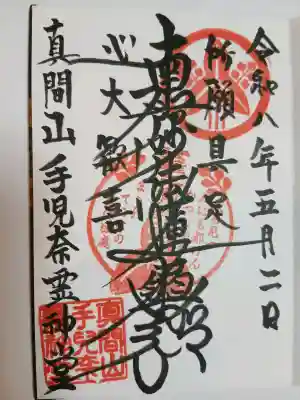 令和八年五月二日
所願具足
南無妙法蓮華経
心大歓喜
真間山手児奈霊神堂
真間山
手兒奈